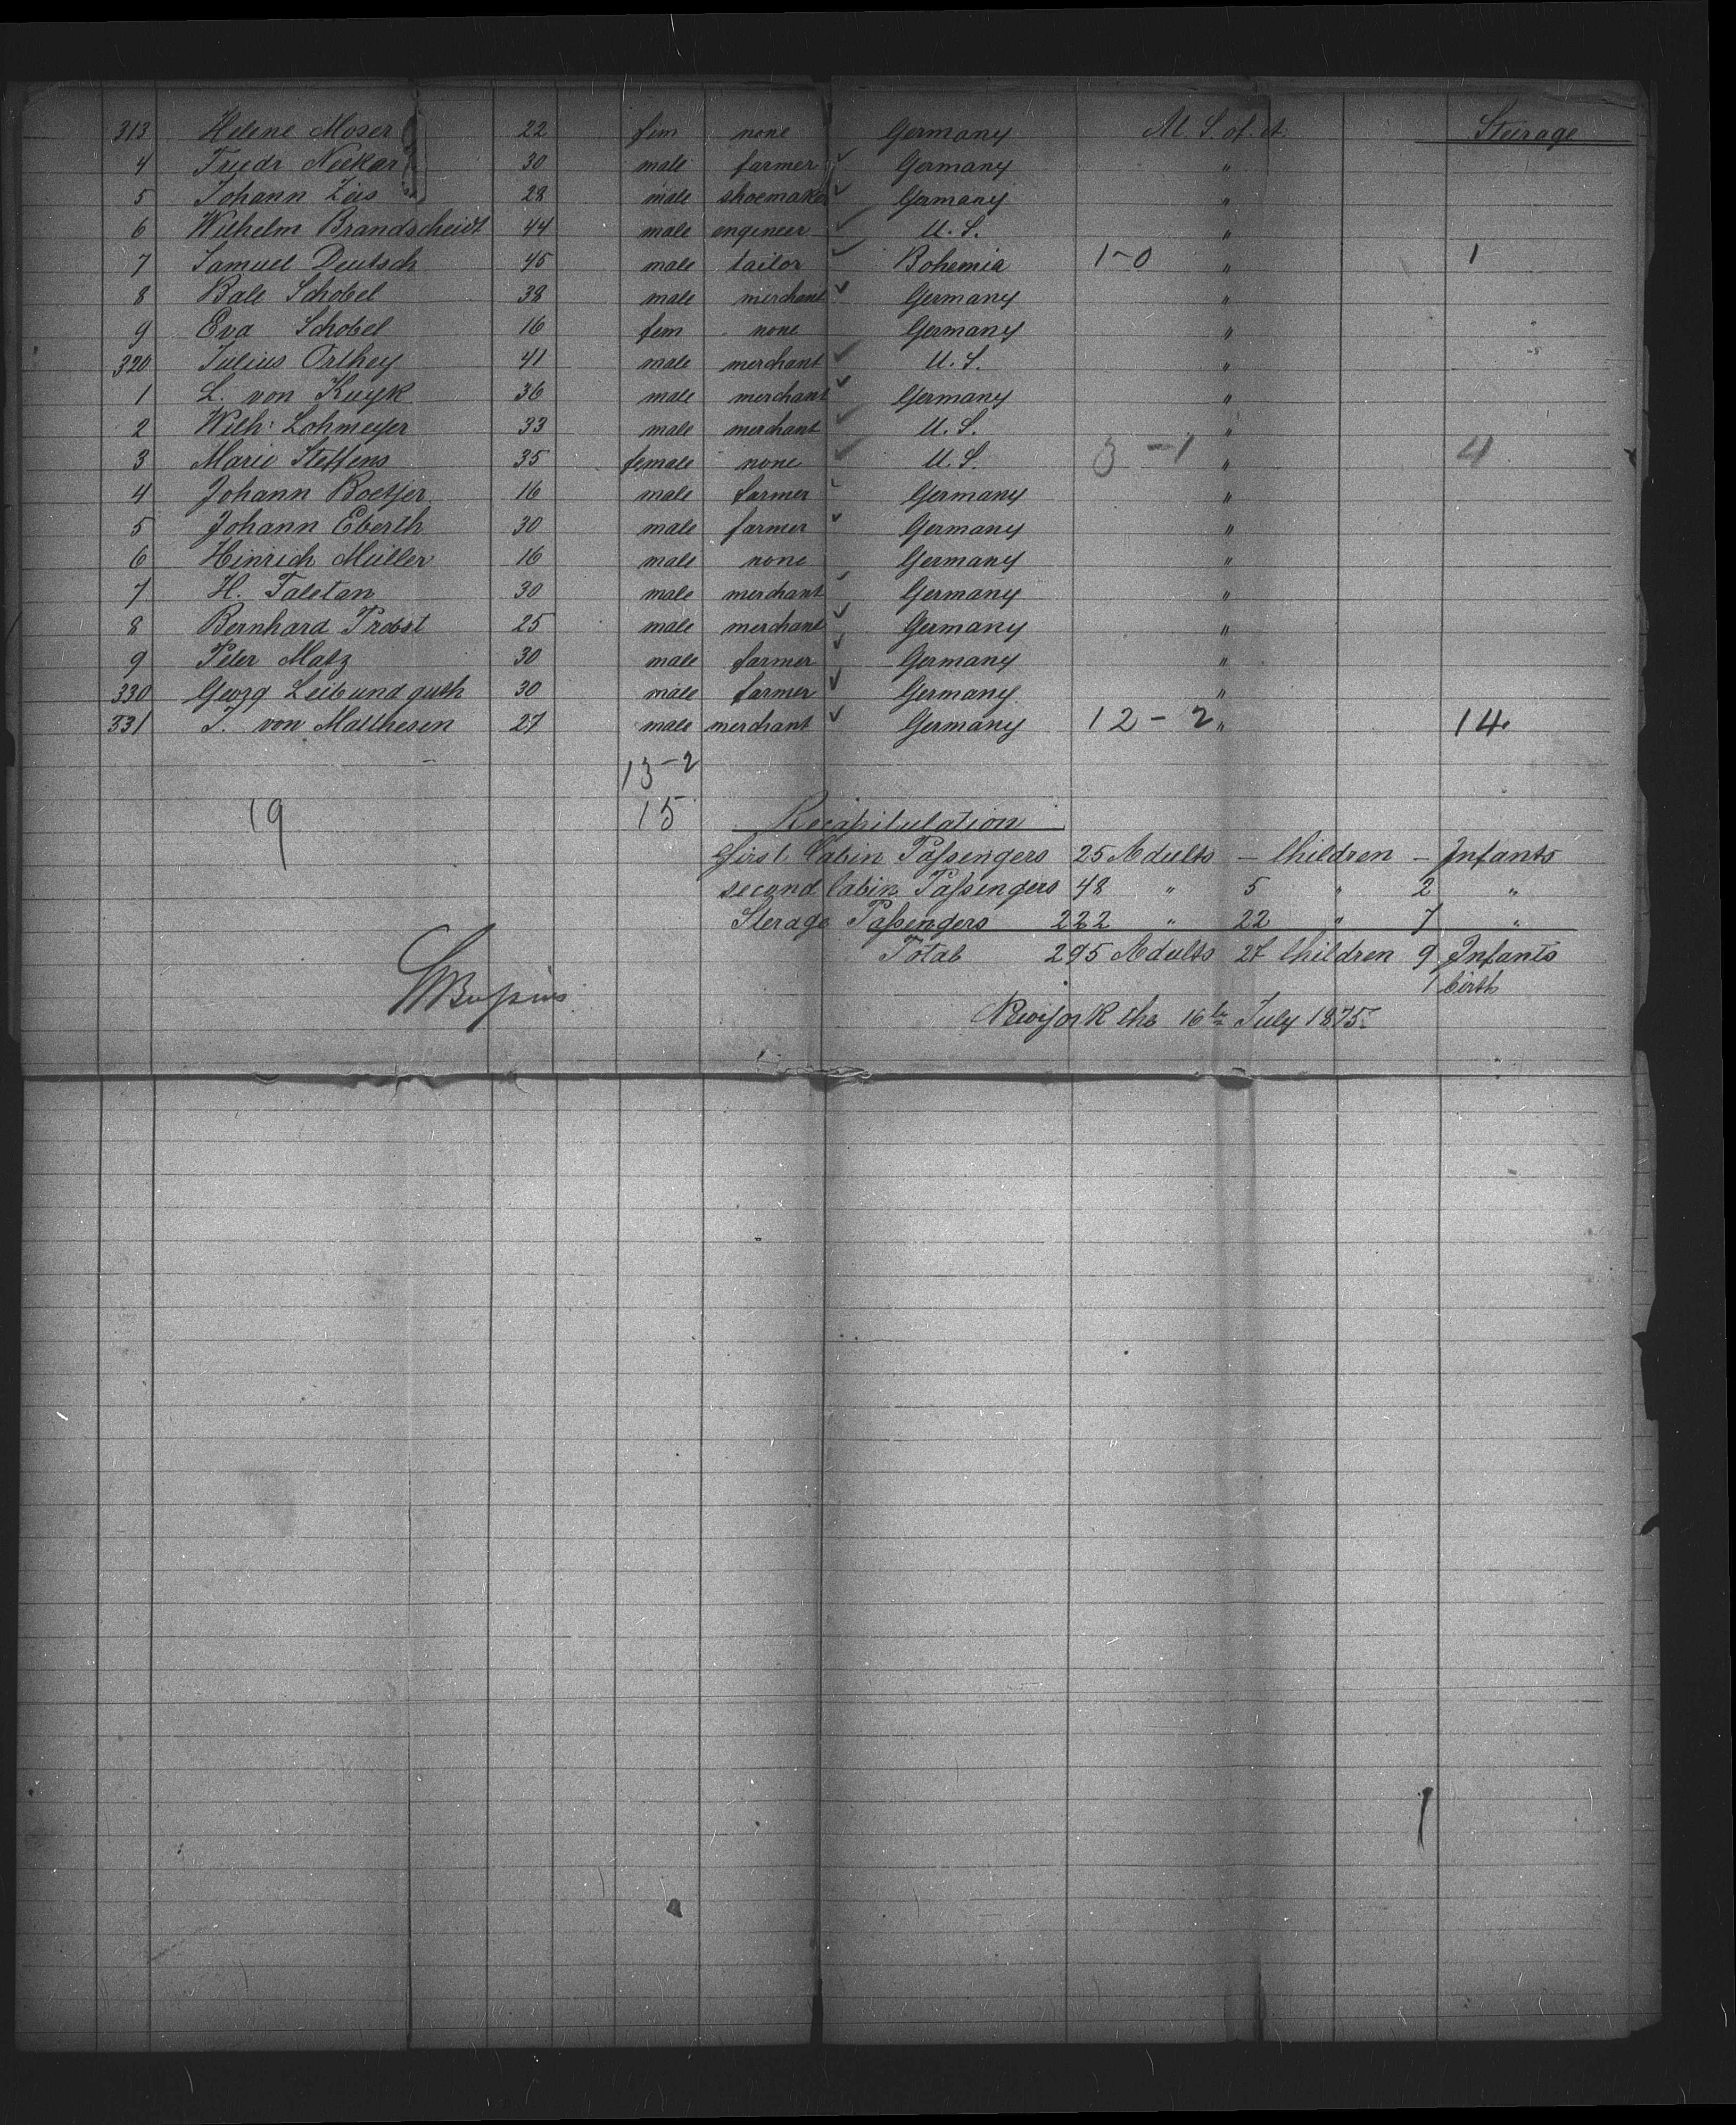 313 Helene Moser 22 fem none Germany U. S. of A. Steerage
4 Friedr Neekar 30 male farmer ✓ Germany "
5 Johann Zeis 28 male shoemaker ✓ Germany "
6 Wilhelm Brandscheidt 44 male engineer ✓ U. S. "
7 Samuel Deutsch 45 male tailor ✓ Bohemia 1-0 " 1
8 Bale Schobel 38 male merchant ✓ Germany "
9 Eva Schobel 16 fem none Germany "
320 Julius Orthey 41 male merchant ✓ U. S. "
1 L. von Kuyk 36 male merchant ✓ Germany "
2 Wilh: Lohmeyer 33 male merchant ✓ U. S. "
3 Marie Steffens 35 female none ✓ U. S. 3-1 " 4
4 Johann Boetjer 16 male farmer ✓ Germany "
5 Johann Eberth 30 male farmer ✓ Germany "
6 Hinrich Müller 16 male none Germany "
7 H. Taletan 30 male merchant ✓ Germany "
8 Bernhard Probst 25 male merchant ✓ Germany "
9 Peter Matz 30 male farmer ✓ Germany "
330 Georg Leibundguth 30 male farmer ✓ Germany "
331 J. von Matthesen 27 male merchant ✓ Germany 12-2 " 14
13-2
19 15 Recapitulation
first Cabin Passengers 25 Adults - Children - Infants
second Cabin Passengers 48 " 5 " 2 "
Sterage Passengers 222 " 22 " 7 "
Total 295 Adults 27 Children 9 Infants
1 birth
Newyork the 16th July 1875